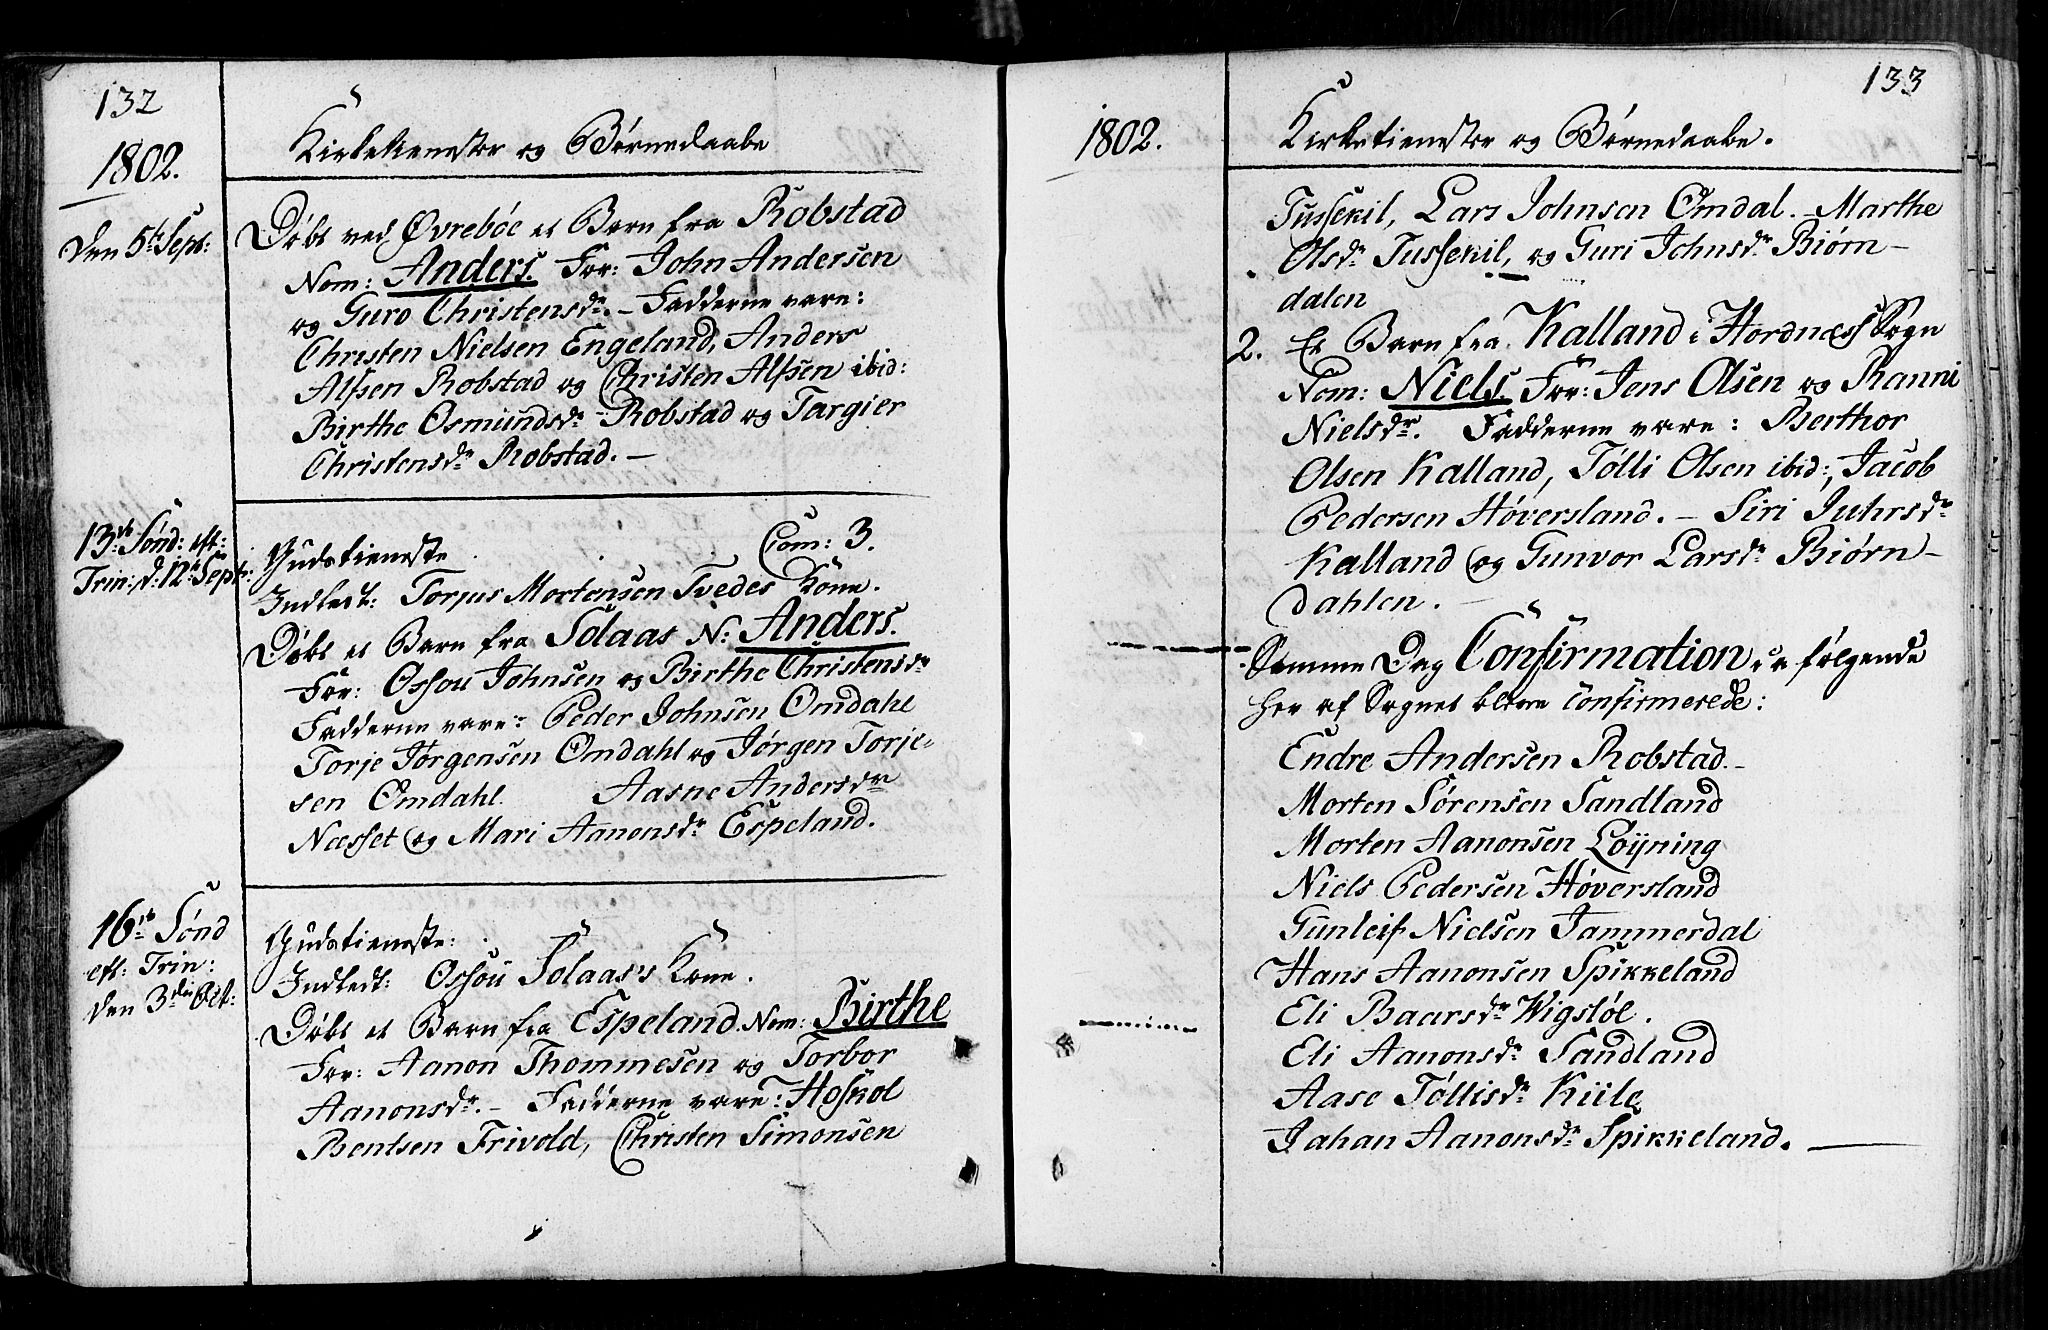 132
1802.
Kirketienester og Børnedaabe
Den 5te Sept:
Døbt ved Øvrebøe et Barn fra Robstad
Nom: Anders. For: John Andersen
og Guro Christensdr. – Fadderne vare:
Christen Nielsen Engeland, Anders
Alfsen Robstad og Christen Alfsen ibid:
Birthe Osmundsdr Robstad og Targier
Christensdr Robstad. –
13de Sønd: eft:
Trin: d: 12te Sept:
Gudstieneste Com: 3.
Indledt: Torjus Mortensen Tvedes Kone.
Døbt et Barn fra Solaas N: Anders.
For: Ossou Johnsen og Birthe Christensdr
Fadderne vare: Peder Johnsen Omdahl
Torje Jørgensen Omdahl og Jørgen Torje-
sen Omdahl. Aasne Andersdr
Næsset og Mari Aanonsdr Espeland.
16de Sønd
eft: Trin:
den 3die Oct:
Gudstieneste:
Indledt: Ossou Solaas's Kone.
Døbt et Barn fra Espeland. Nom: Birthe
For: Aanon Thommesen og Torbor
Aanonsdr. – Fadderne vare: Hoskol
Bentsen Frivold, Christen Simonsen
133
1802.
Kirketienester og Børnedaabe.
Tussekil, Lars Johnsen Omdal. – Marthe
Olsdr Tussekil, og Guri Johnsdr Biørn-
dalen
2. Et Barn fra Kalland i Hordnæss Sogn
Nom: Niels. For: Jens Olsen og Ranni
Nielsdr. Fadderne vare: Berthor
Olsen Kalland, Tølli Olsen ibid:, Jacob
Pedersen Høversland. – Siri Juhrsdr
Kalland og Gunvor Larsdr Biørn-
dahlen.
Samme Dag Confirmation, da følgende
her af Sognet bleve confirmerede:
Endre Andersen Robstad. –
Morten Sørensen Sandland
Morten Aanonsen Løyning
Niels Pedersen Høversland
Gunleif Nielsen Jammerdal
Hans Aanonsen Spikkeland
Eli Baarsdr Wigsløe.
Eli Aanonsdr Sandland
Aase Tøllisdr Kiile
Jahan Aanonsdr Spikkeland. —